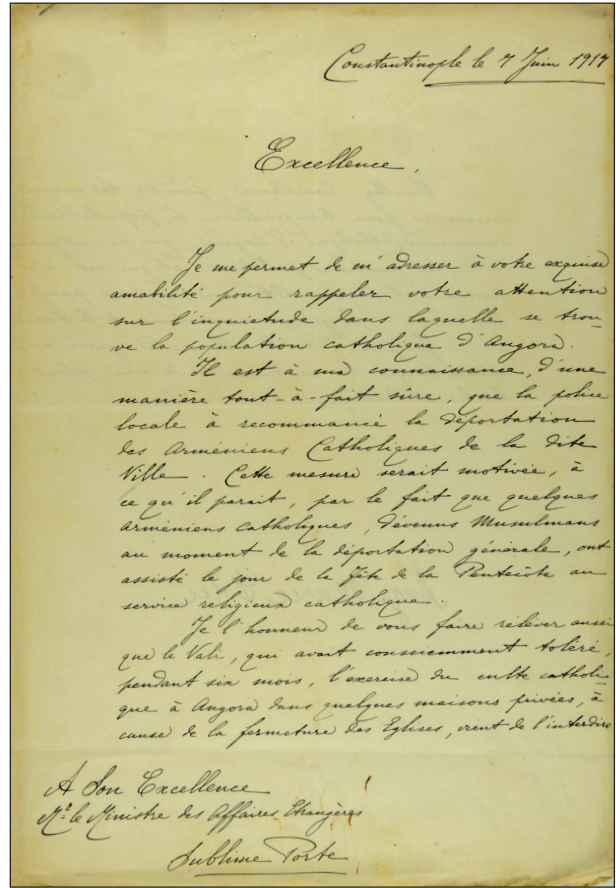 Constantinople le 7 Juin 1917
Excellence,
Je me permet de m'adresser à votre exquise
amabilité pour rappeler votre attention
sur l'inquietude dans laquelle se trou-
ve la population catholique d'Angora.
Il est à ma connaissance, d'une
manière tout-à-fait sûre, que la police
locale à recommancé la déportation
des Arméniens Catholiques de la dite
Ville. Cette mesure serait motivée, à
ce qu'il parait, par le fait que quelques
Arméniens catholiques, devenus Musulmans
au moment de la déportation générale, ont
assisté le jour de la Fête de la Pentecôte au
service religieux catholique.
Je l'honneur de vous faire réléver aussi
que le Vali, qui avait consciemment toléré,
pendant six mois, l'exercise du culte catholi-
que à Angora dans quelques maisons privées, à
cause de la fermeture des Eglises, vient de l'interdire
A Son Excellence
Mr. le Ministre des Affaires Etrangères
Sublime Porte